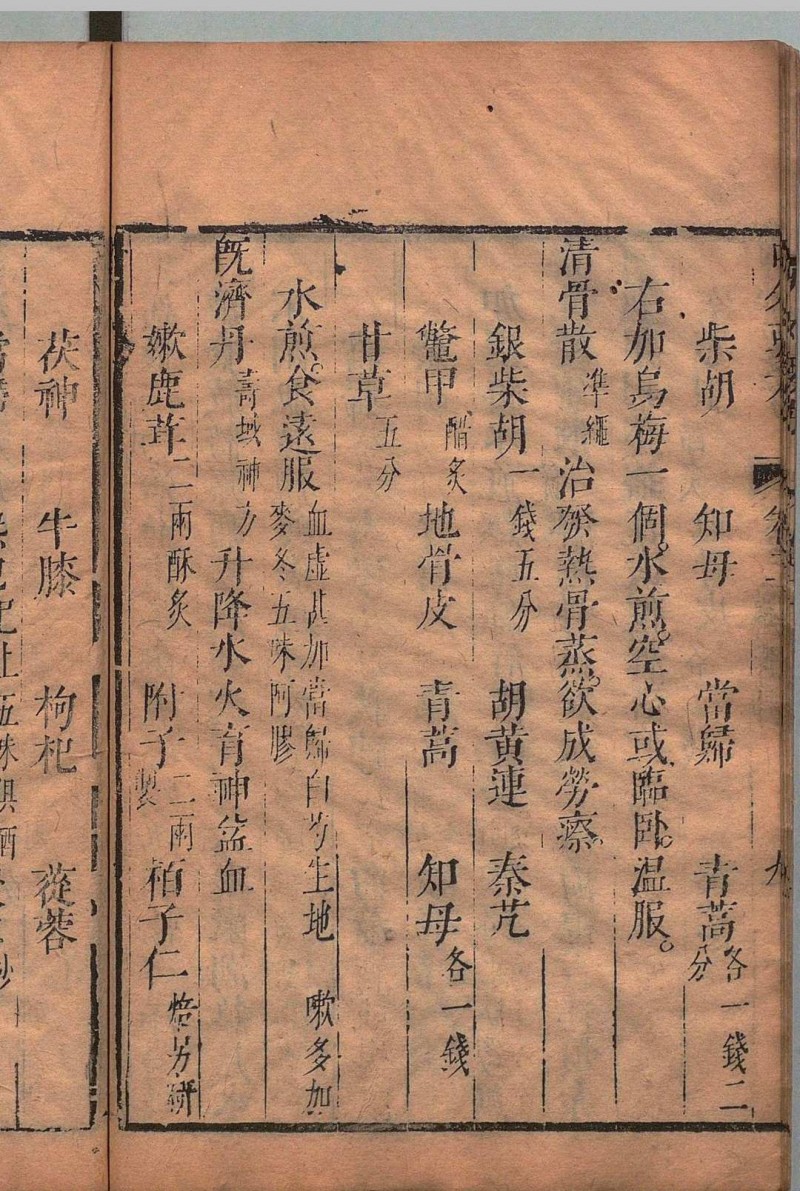 柴胡　知母　當歸　青蒿各一錢二分
右加烏梅一個。水煎。空心或臨卧。温服。
清骨散準繩　治發熱骨蒸。欲成勞瘵。
銀柴胡一錢五分　胡黃連　秦艽
鱉甲醋炙　地骨皮　青蒿　知母各一錢
甘草五分
水煎。食遠服血虛甚加當歸白芍生地　嗽多加麥冬五味阿膠
既濟丹壽域神方　升降水火育神益血
嫩鹿茸二兩酥炙　附子二兩製　栢子仁焙另研
茯神　牛膝　枸杞　蓯蓉